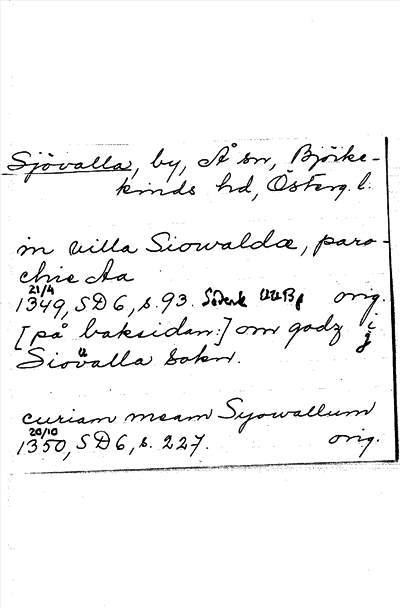 Sjövalla, by, Å sn, Björke-
kinds hd, Österg. l.
in villa Siowaldæ, paro-
chie Aa
21/4
1349, SD 6, s. 93. orig.
[på baksidan:] om godz j
Siovalla sokn.
curiam meam Syowallum
20/10
1350, SD 6, s. 227. orig.